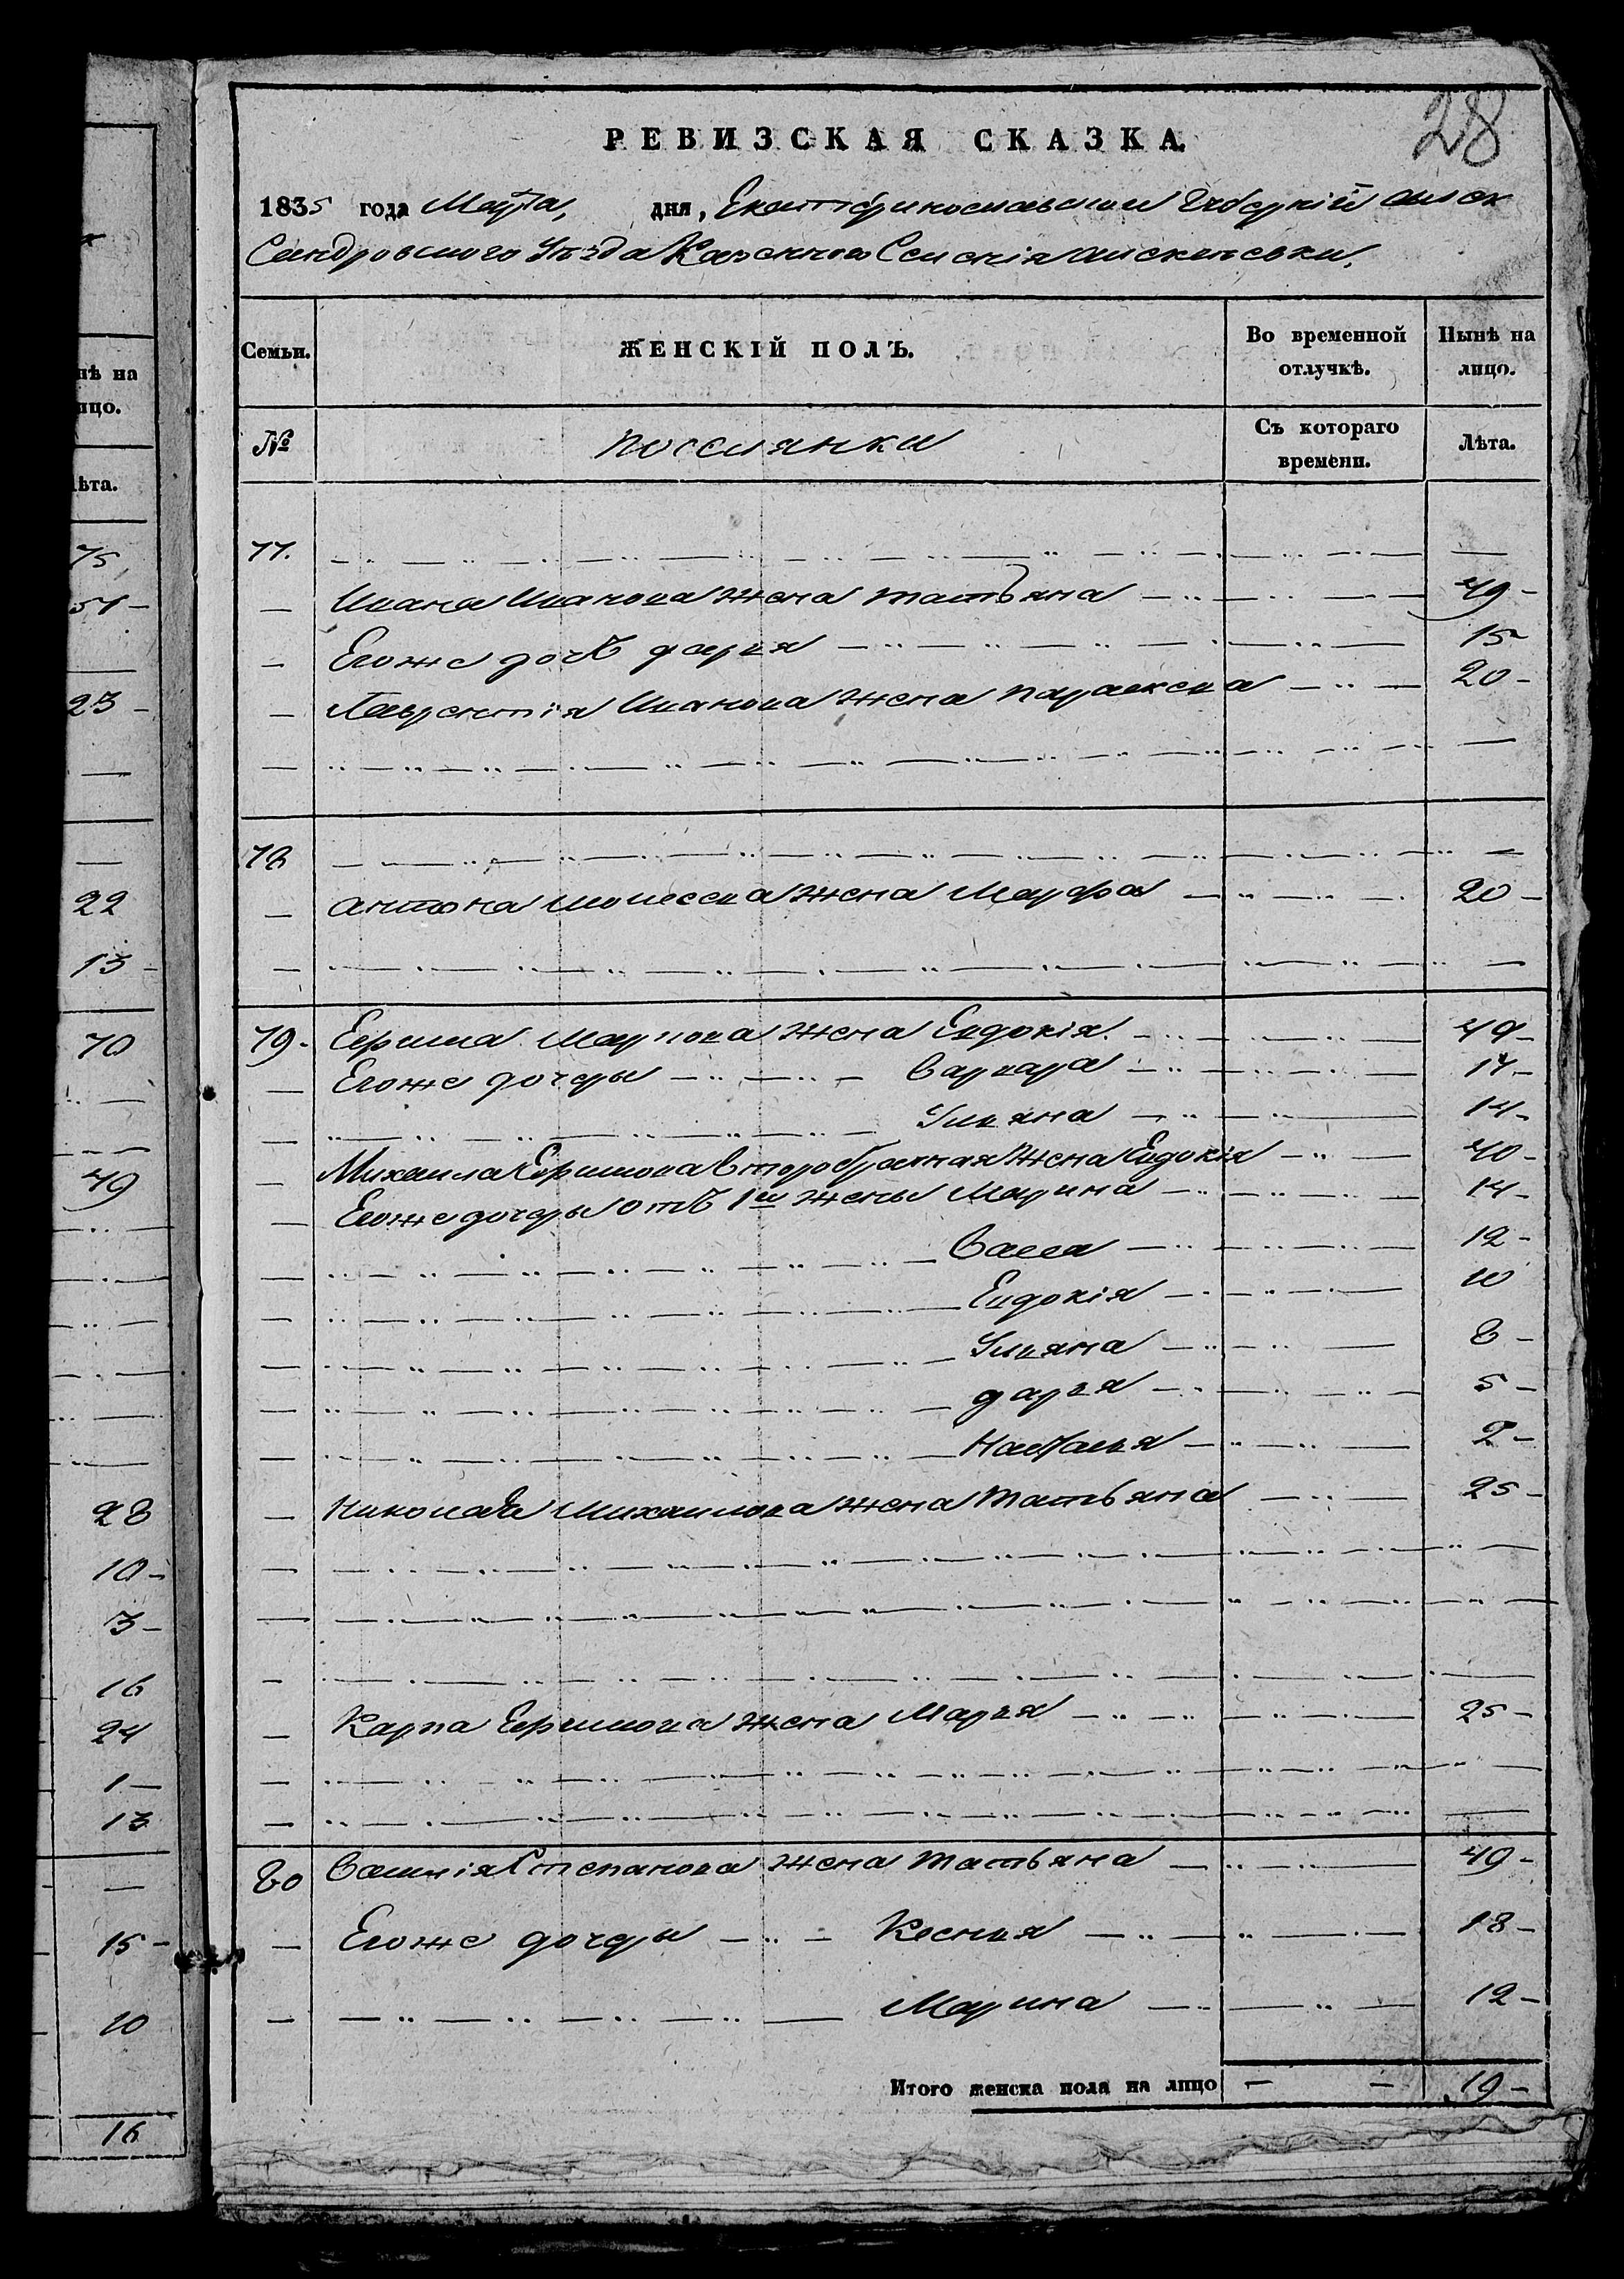 нѣ на
ицо.
ѣта.
75
51 -
23 -
22
13 -
70
49
28
10 -
3 -
16
24
1 -
13
15 -
10
16
28
РЕВИЗСКАЯ СКАЗКА.
1835 года Марта, дня, Екатеринославской Губерніи Алек
Сандровского Уѣзда Казенного Селенія
Семьи. ЖЕНСКІЙ ПОЛЪ. Во временной отлучкѣ. Нынѣ на лицо.
№ поселянки Съ котораго времени. Лѣта.
77.
Ивана Иванова жена татьяна 49 -
Егоже дочь дарья 15 -
Лаврентія Иванова жена параскева 20 -
78
антона Моисеева жена Марфа 20 -
79. Ефима Карпова жена Евдокія. 49 -
Егоже дочеры Варвара 17 -
Ульяна 14 -
Михаила Ефимова второбрачная жена Евдокія 40 -
Егоже дочеры отъ 1й жены Марина 14 -
Васса 12 -
Евдокія 10
Ульяна 8 -
дарья 5 -
Наталья 2 -
николая Михаилова жена татьяна 25 -
Карпа Ефимова жена Марья 25 -
80 Василія Степанова жена татьяна 49 -
Егоже дочеры Ксенья 18 -
Марина 12 -
Итого женска пола на лицо — — 19 -